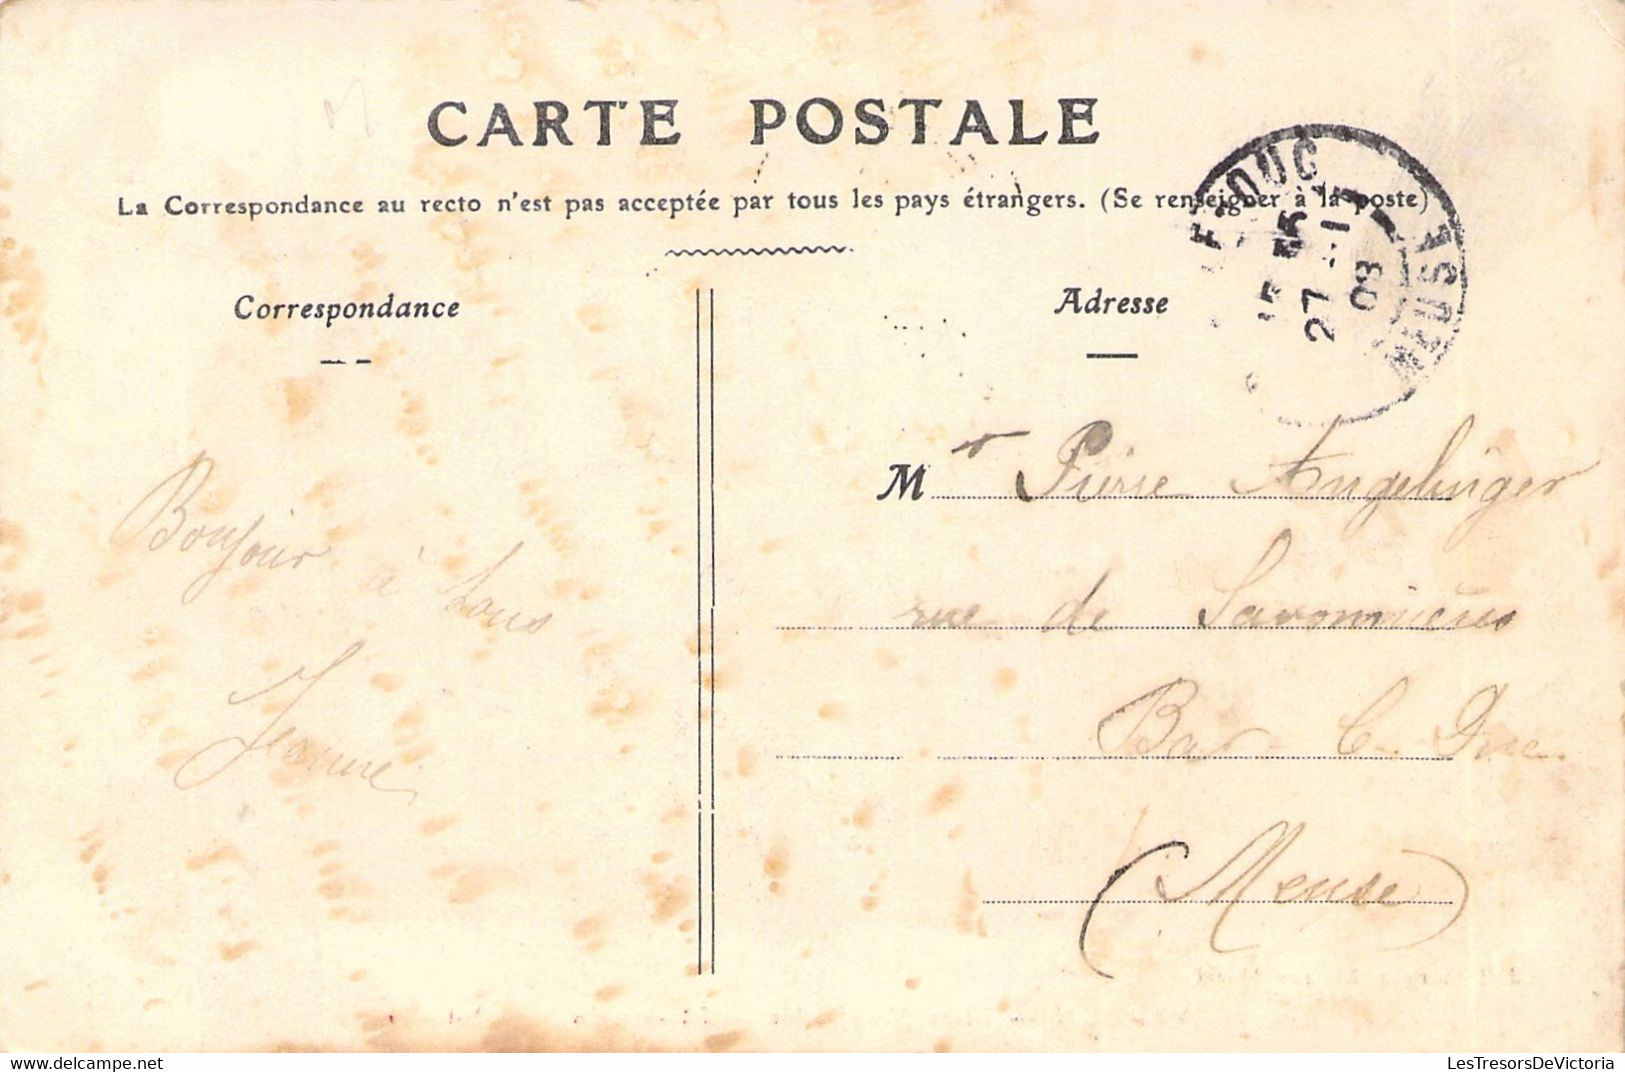 CARTE POSTALE
La Correspondance au recto n'est pas acceptée par tous les pays étrangers. (Se renseigner à la poste)
Correspondance
Adresse
27 -11
08
MEUSE
Mr Pierre Angelinger
rue de Savonnières
Bar-le-Duc
(Meuse)
Bonjour
à tous
Jeanne
LesTresorsDeVictoria